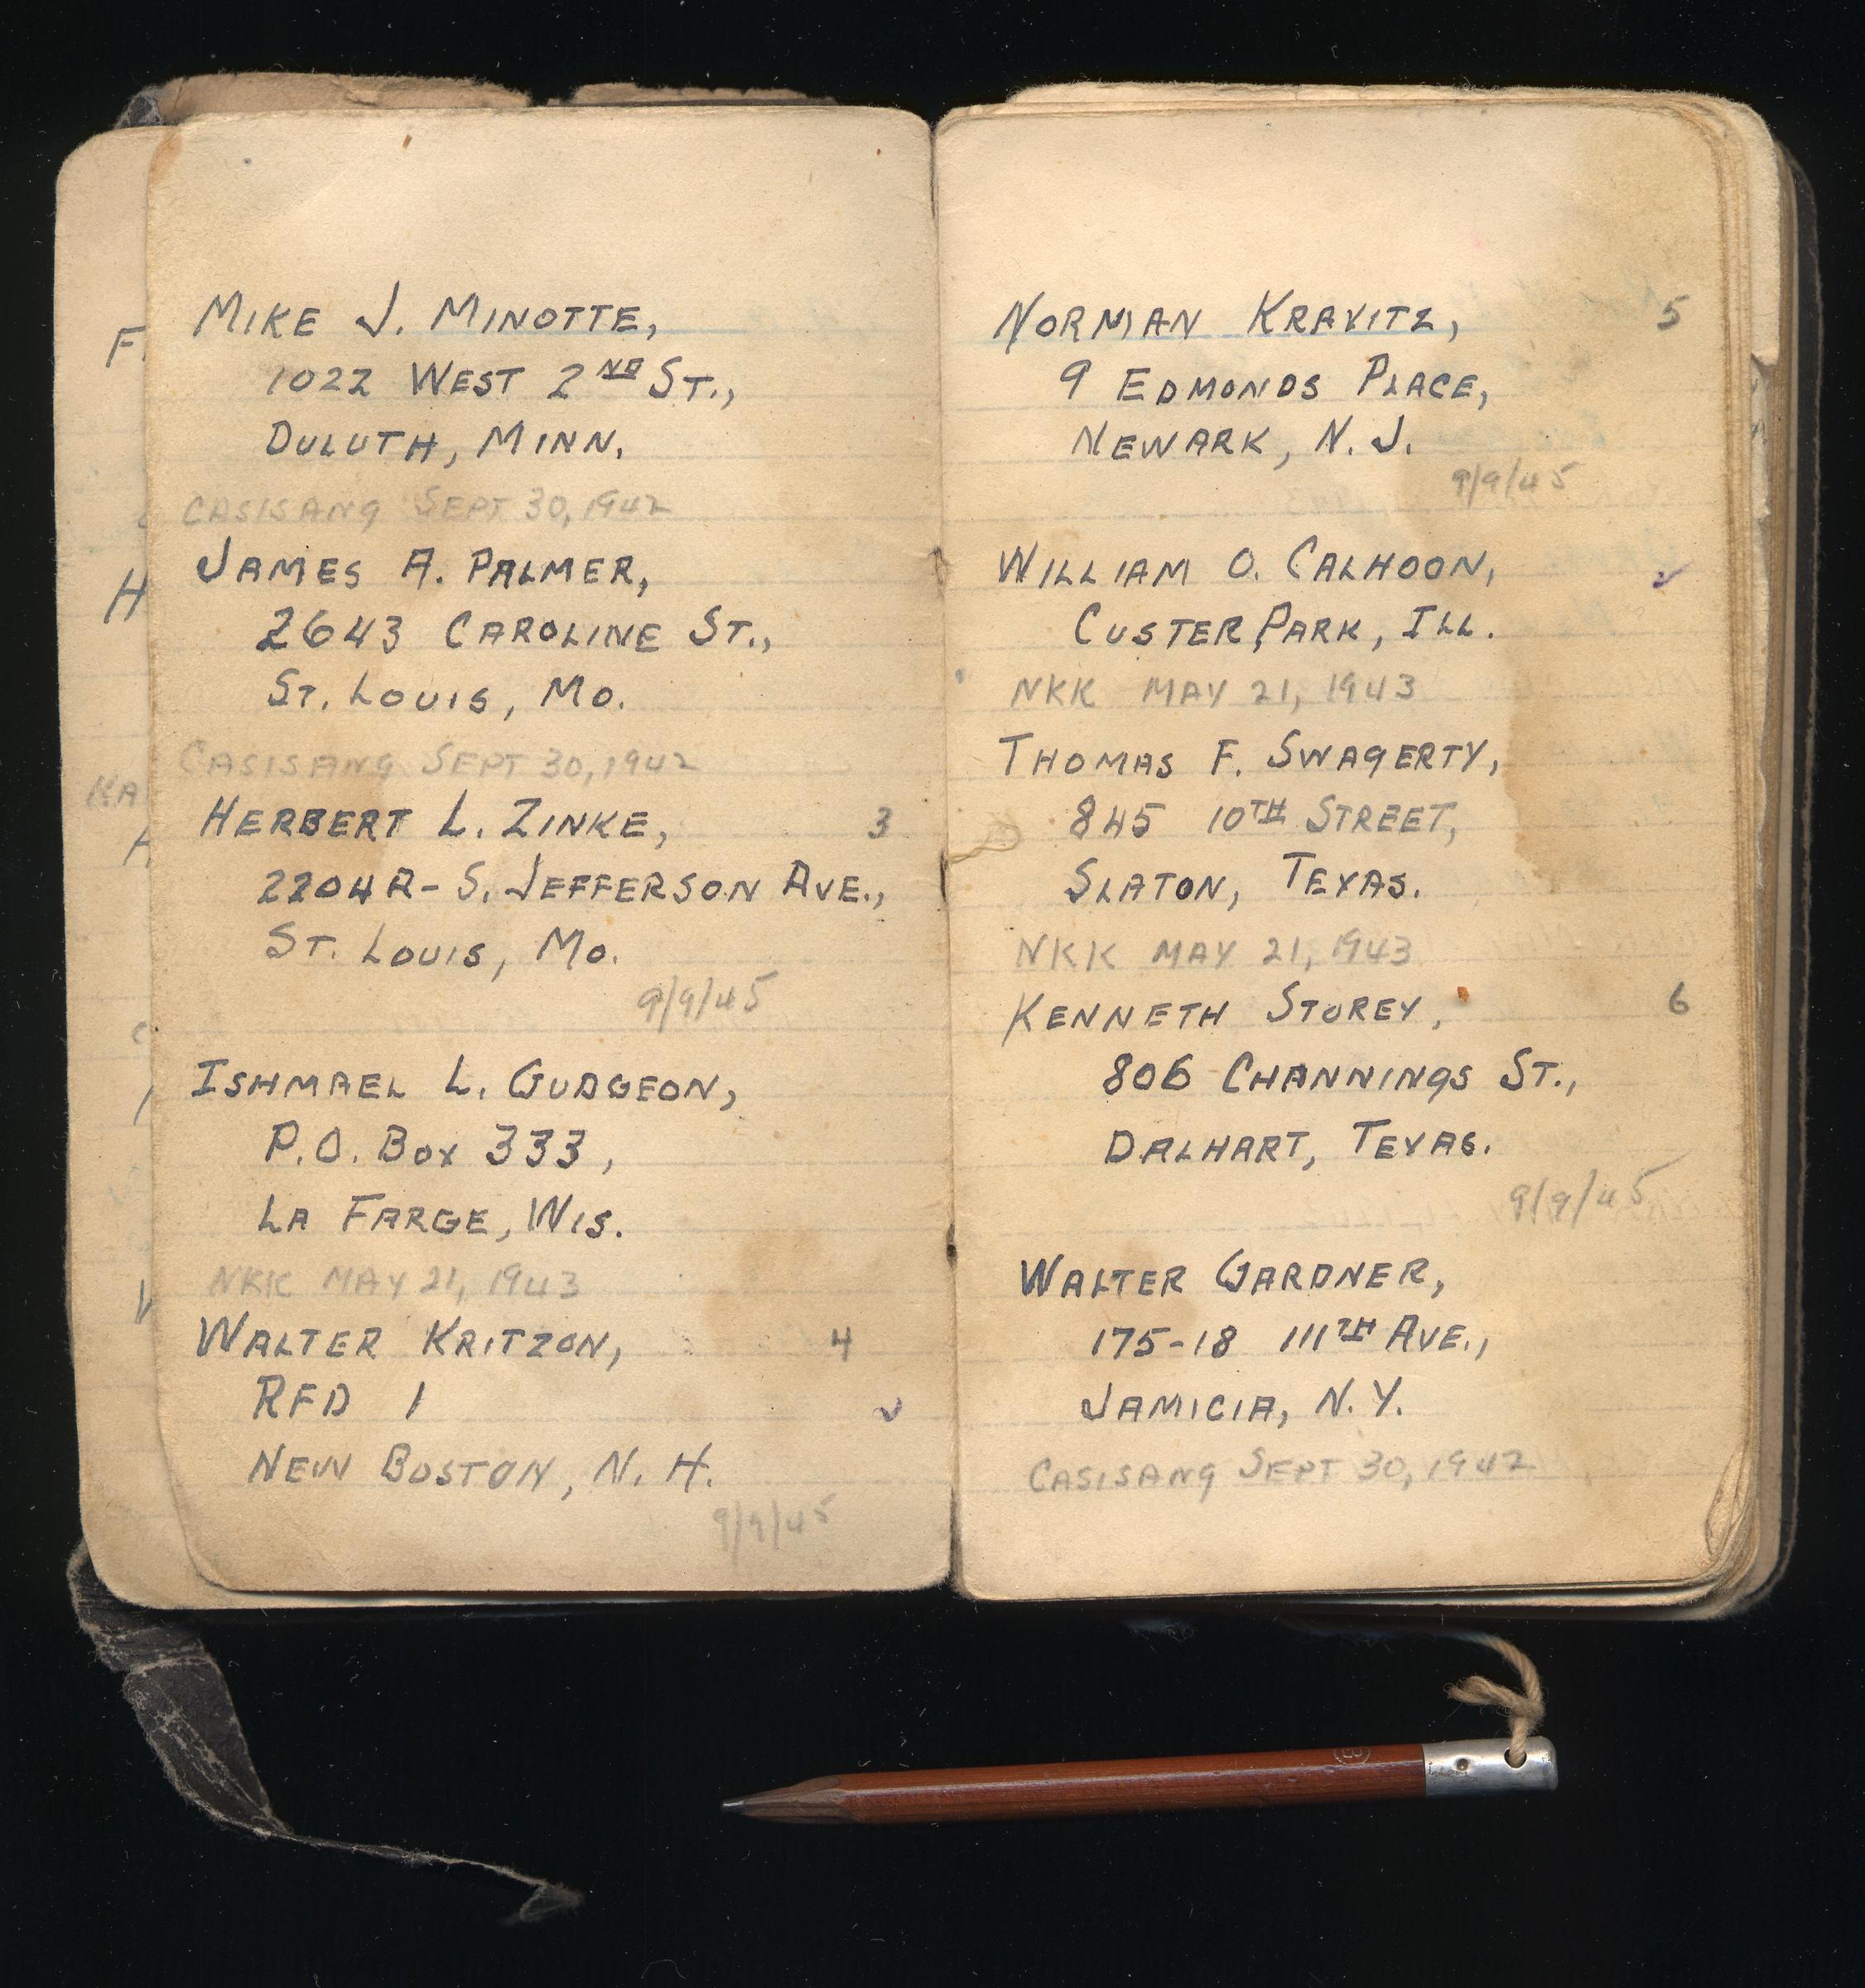 MIKE J. MINOTTE,
1022 WEST 2ND ST.,
DULUTH, MINN.
CASISANG SEPT 30, 1942
JAMES A. PALMER,
2643 CAROLINE ST.,
ST. LOUIS, MO.
CASISANG SEPT 30, 1942
HERBERT L. ZINKE, 3
2204A- S. JEFFERSON AVE.,
ST. LOUIS, MO.
9/9/45
ISHMAEL L. GUDGEON,
P.O. BOX 333,
LA FARGE, WIS.
NKK MAY 21, 1943
WALTER KRITZON, 4
RFD 1 ✓
NEW BOSTON, N. H.
9/9/45
NORMAN KRAVITZ, 5
9 EDMONDS PLACE,
NEWARK, N. J.
9/9/45
WILLIAM O. CALHOON, ✓
CUSTER PARK, ILL.
NKK MAY 21, 1943
THOMAS F. SWAGERTY,
845 10TH STREET,
SLATON, TEXAS.
NKK MAY 21, 1943
KENNETH STOREY, 6
806 CHANNINGS ST.,
DALHART, TEXAS.
9/9/45
WALTER GARDNER,
175-18 111TH AVE.,
JAMICIA, N.Y.
CASISANG SEPT 30, 1942